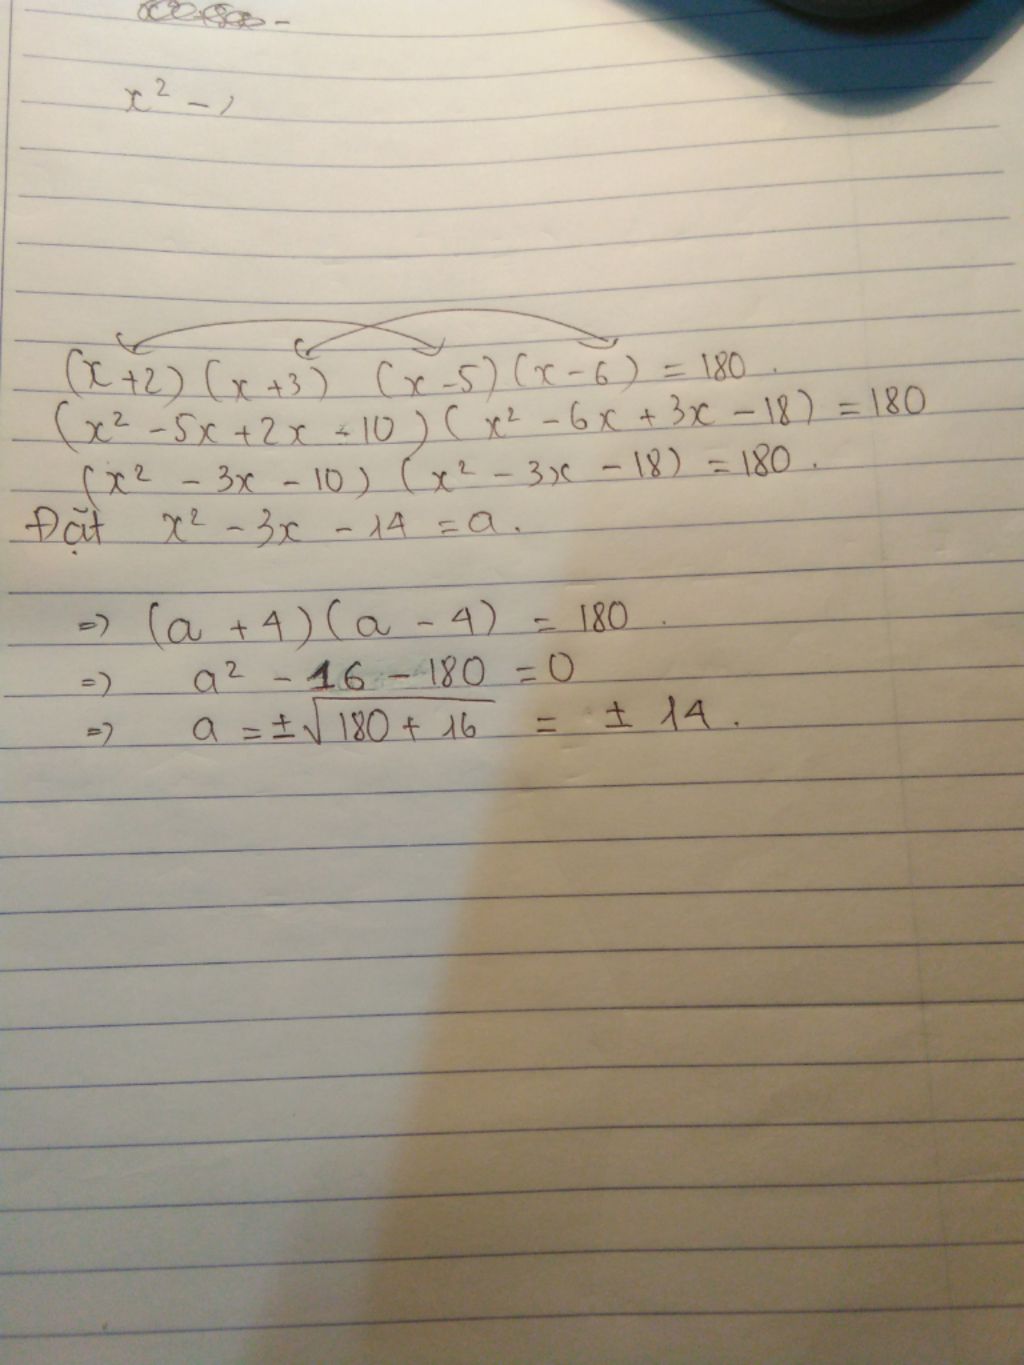 x² -
(x+2) (x+3) (x-5) (x-6) = 180.
(x² - 5x + 2x - 10) (x² - 6x + 3x - 18) = 180
(x² - 3x - 10) (x² - 3x - 18) = 180.
Đặt x² - 3x - 14 = a.
=> (a + 4) (a - 4) = 180.
=> a² - 16 - 180 = 0
=> a = ±√(180 + 16) = ± 14.